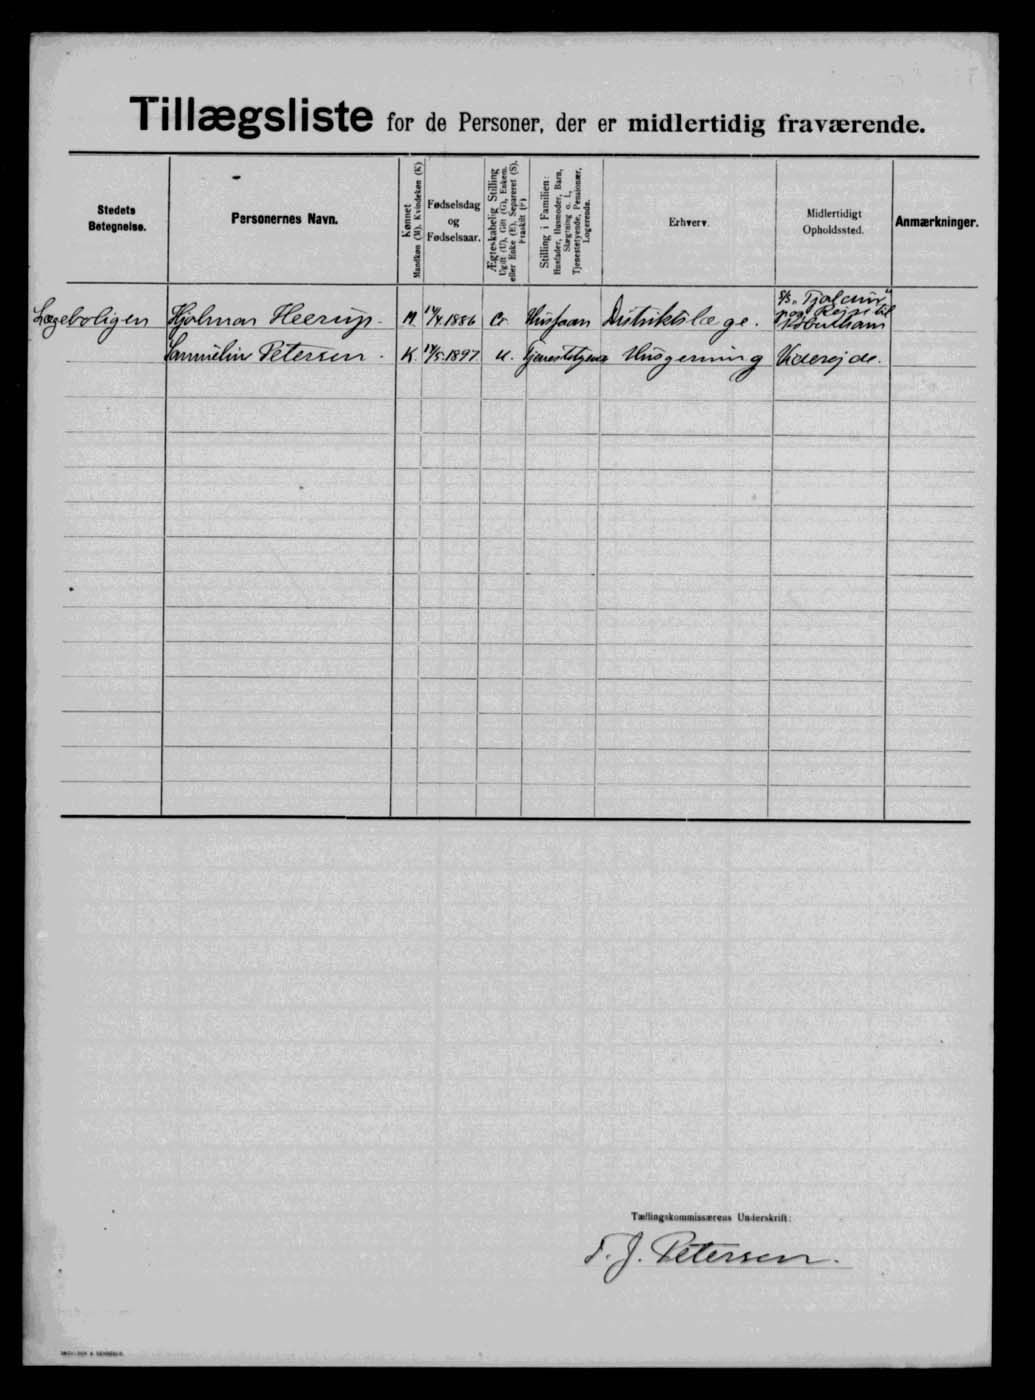 Tillægsliste for de Personer, der er midlertidig fraværende.
Stedets Betegnelse.
Personernes Navn.
Kønnet
Mandkøn (M). Kvindekøn (K)
Fødselsdag
og
Fødselsaar.
Ægteskabelig Stilling
Ugift (U), Gift (G), Enkem.
eller Enke (E), Separeret (S),
Fraskilt (F)
Stilling i Familien:
Husfader, Husmoder, Barn,
Slægtning o. l.,
Tjenestetyende, Pensionær,
Logerende.
Erhverv.
Midlertidigt
Opholdssted.
Anmærkninger.
Lægeboligen Hjalmar Heerup. M. 1886 Distriktslæge. S/S "Tjaldur" paa Rejse til København
Petersen. K. 1897 U. Tjenestetyende Husgerning Viderejde.
Tællingskommissærens Underskrift:
T. J. Petersen.